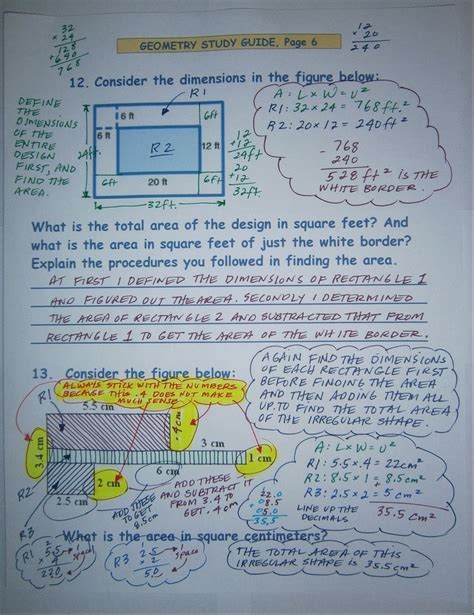 32
× 24
128
+640
768
GEOMETRY STUDY GUIDE, Page 6
12
× 20
240
12. Consider the dimensions in the figure below:
DEFINE
THE
DIMENSIONS
OF THE
ENTIRE
DESIGN
FIRST, AND
FIND THE
AREA.
R1
6 ft
6ft
6 ft
R2
12 ft
24ft
6ft
20 ft
6ft
32ft.
12
+12
24ft
20
+12
32ft.
A: L × W = U²
R1: 32×24 = 768ft.²
R2: 20×12 = 240ft²
- 768
240
528 ft² IS THE
WHITE BORDER.
What is the total area of the design in square feet? And
what is the area in square feet of just the white border?
Explain the procedures you followed in finding the area.
AT FIRST I DEFINED THE DIMENSIONS OF RECTANGLE 1
AND FIGURED OUT THE AREA. SECONDLY I DETERMINED
THE AREA OF RECTANGLE 2 AND SUBTRACTED THAT FROM
RECTANGLE 1 TO GET THE AREA OF THE WHITE BORDER.
13. Consider the figure below:
ALWAYS STICK WITH THE NUMBERS
BECAUSE THIS .4 DOES NOT MAKE
MUCH SENSE
R1
5.5 cm
.4cm
3.4 cm
3 cm
1 cm
6 cm
R2
2 cm
2.5 cm
R3
ADD THESE
TO GET
8.5cm
ADD THESE
AND SUBTRACT IT
FROM 3.4 TO
GET .4 cm
AGAIN FIND THE DIMENSIONS
OF EACH RECTANGLE FIRST
BEFORE FINDING THE AREA
AND THEN ADDING THEM ALL
UP TO FIND THE TOTAL AREA
OF THE IRREGULAR SHAPE.
A: L × W = U²
R1: 5.5 × 4 = 22cm²
R2: 8.5 × 1 = 8.5cm²
R3: 2.5 × 2 = 5 cm²
LINE UP THE
DECIMALS
35.5 cm²
22.0
08.5
+05.0
35.5
What is the area in square centimeters?
R1
5.5
× 4
22.0
1 space
R3
2.5
× 2
5.0
1 space
THE TOTAL AREA OF THIS
IRREGULAR SHAPE IS 35.5cm²